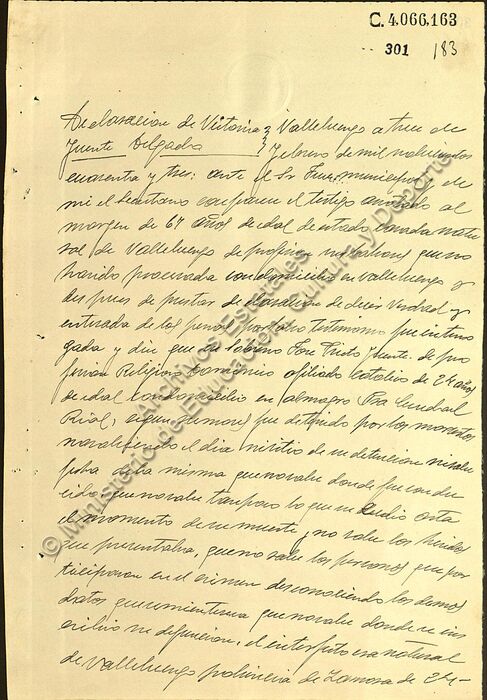 C. 4.066.163
301 183
Declaracion de Victoria } Valleluengo a tres de
Fuente Delgado } Febrero de mil novecientos
cuarenta y tres: ante el Sr Juez municipal y de
mi el Secretario comparece el testigo anotado al
margen de 67 años de edad de estado casada natu
ral de Valleluengo de profesion sus labores que no
ha sido procesada con domicilio en Valleluengo y
despues de prestar declaracion de decir verdad y
enterada de las penas por falso testimonio fue interro
gada y dice que su sobrino Jose Prieto Fuente de pro
fesion Religioso Dominico afiliado catolico de 24 años
de edad con domicilio en Almagro Pra Ciudad
Real, segun rumores fue detenido por los marxistas
no sabiendo el dia ni sitio de su detencion ni sabe
fecha de la misma que no sabe donde fue condu
cido, que no sabe tampoco lo que sucedio
el momento de su muerte, no sabe las heridas
que presentaba, que no sabe las personas que par
ticiparon en el crimen desconociendo los demas
datos que no sabe donde se ins
cribio su defuncion, el interfecto era natural
de Valleluengo provincia de Zamora de 24-
© Ministerio de Educación, Cultura y Deporte
Archivos Estatales